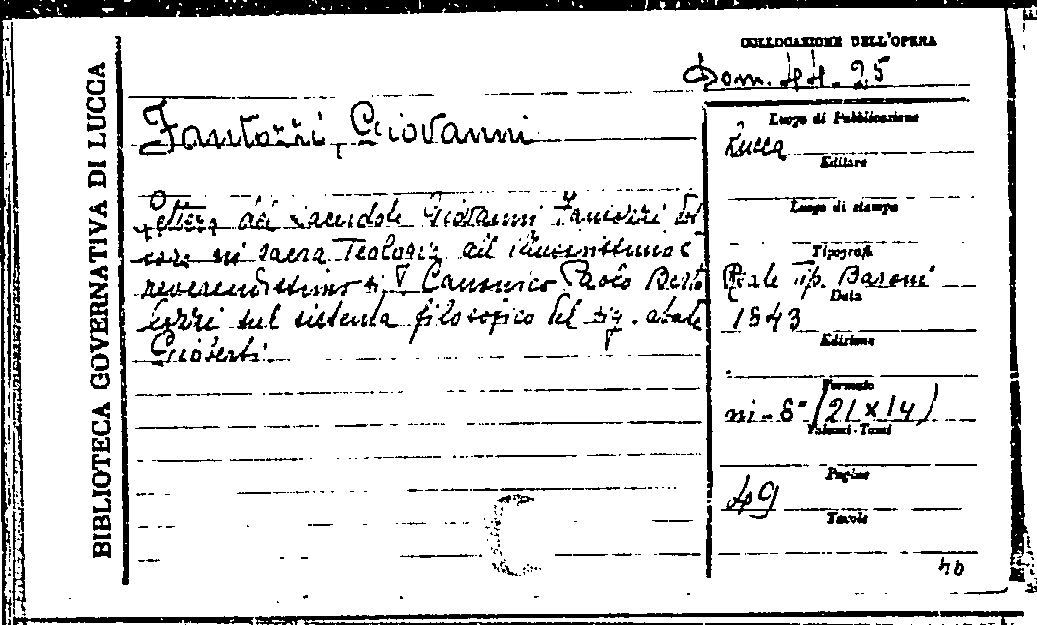 BIBLIOTECA GOVERNATIVA DI LUCCA
COLLOCAZIONE DELL'OPERA
Dom. 44. 25
Fantozzi, Giovanni
Lettera del sacerdote Giovanni Fantozzi dot
tore in sacra Teologia all'illustrissimo e
reverendissimo sig. Canonico Paolo Berto
lozzi sul sistema filosofico del sig. abate
Gioberti.
Luogo di Pubblicazione
Lucca
Editore
Luogo di stampa
Tipografi
Reale tip. Baroni
Data
1843
Edizione
Formato
in-8° (21 x 14)
Volumi-Tomi
Pagine
49
Tavole